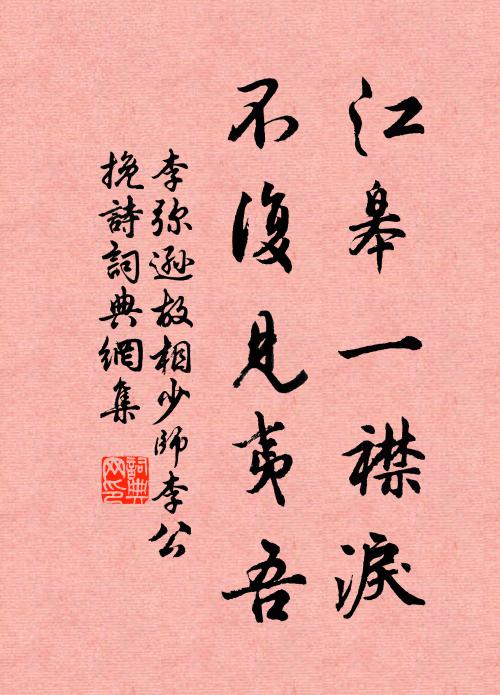 江皋一襟淚
不復見夷吾
李弥遜故相少師李公
挽詩詞典網集
詞典網印